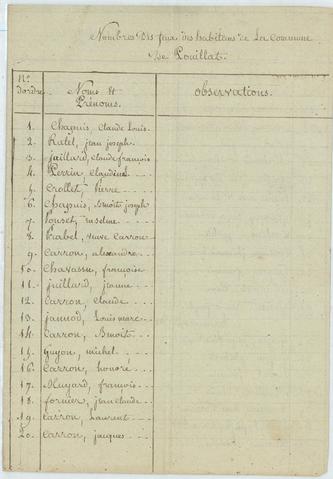 Nombres Des feux des habitens de La Commune
De Pouillat.
No. d'ordre
Noms et Prénoms.
observations.
1. Chapuis, Claude Louis.
2. Ratel, jean joseph.
3. jaillard, claude francois
4. Perrin, Claudine
5. Crollet, Pierre
6. Chapuis, Benoits joseph
7. Ponset, anselme
8. Rabel, veuve Carron
9. Carron, alexandre
10. Chavassu, françoise
11. juillard, jeanne
12. Carron, Claude
13. janнod, Louis marc
14. Carron, Benoits
15. guyon, michel
16. Carron, honoré
17. Huyard, françois
18. fornier, jean claude
19. Carron, Laurent
20. Carron, jacques